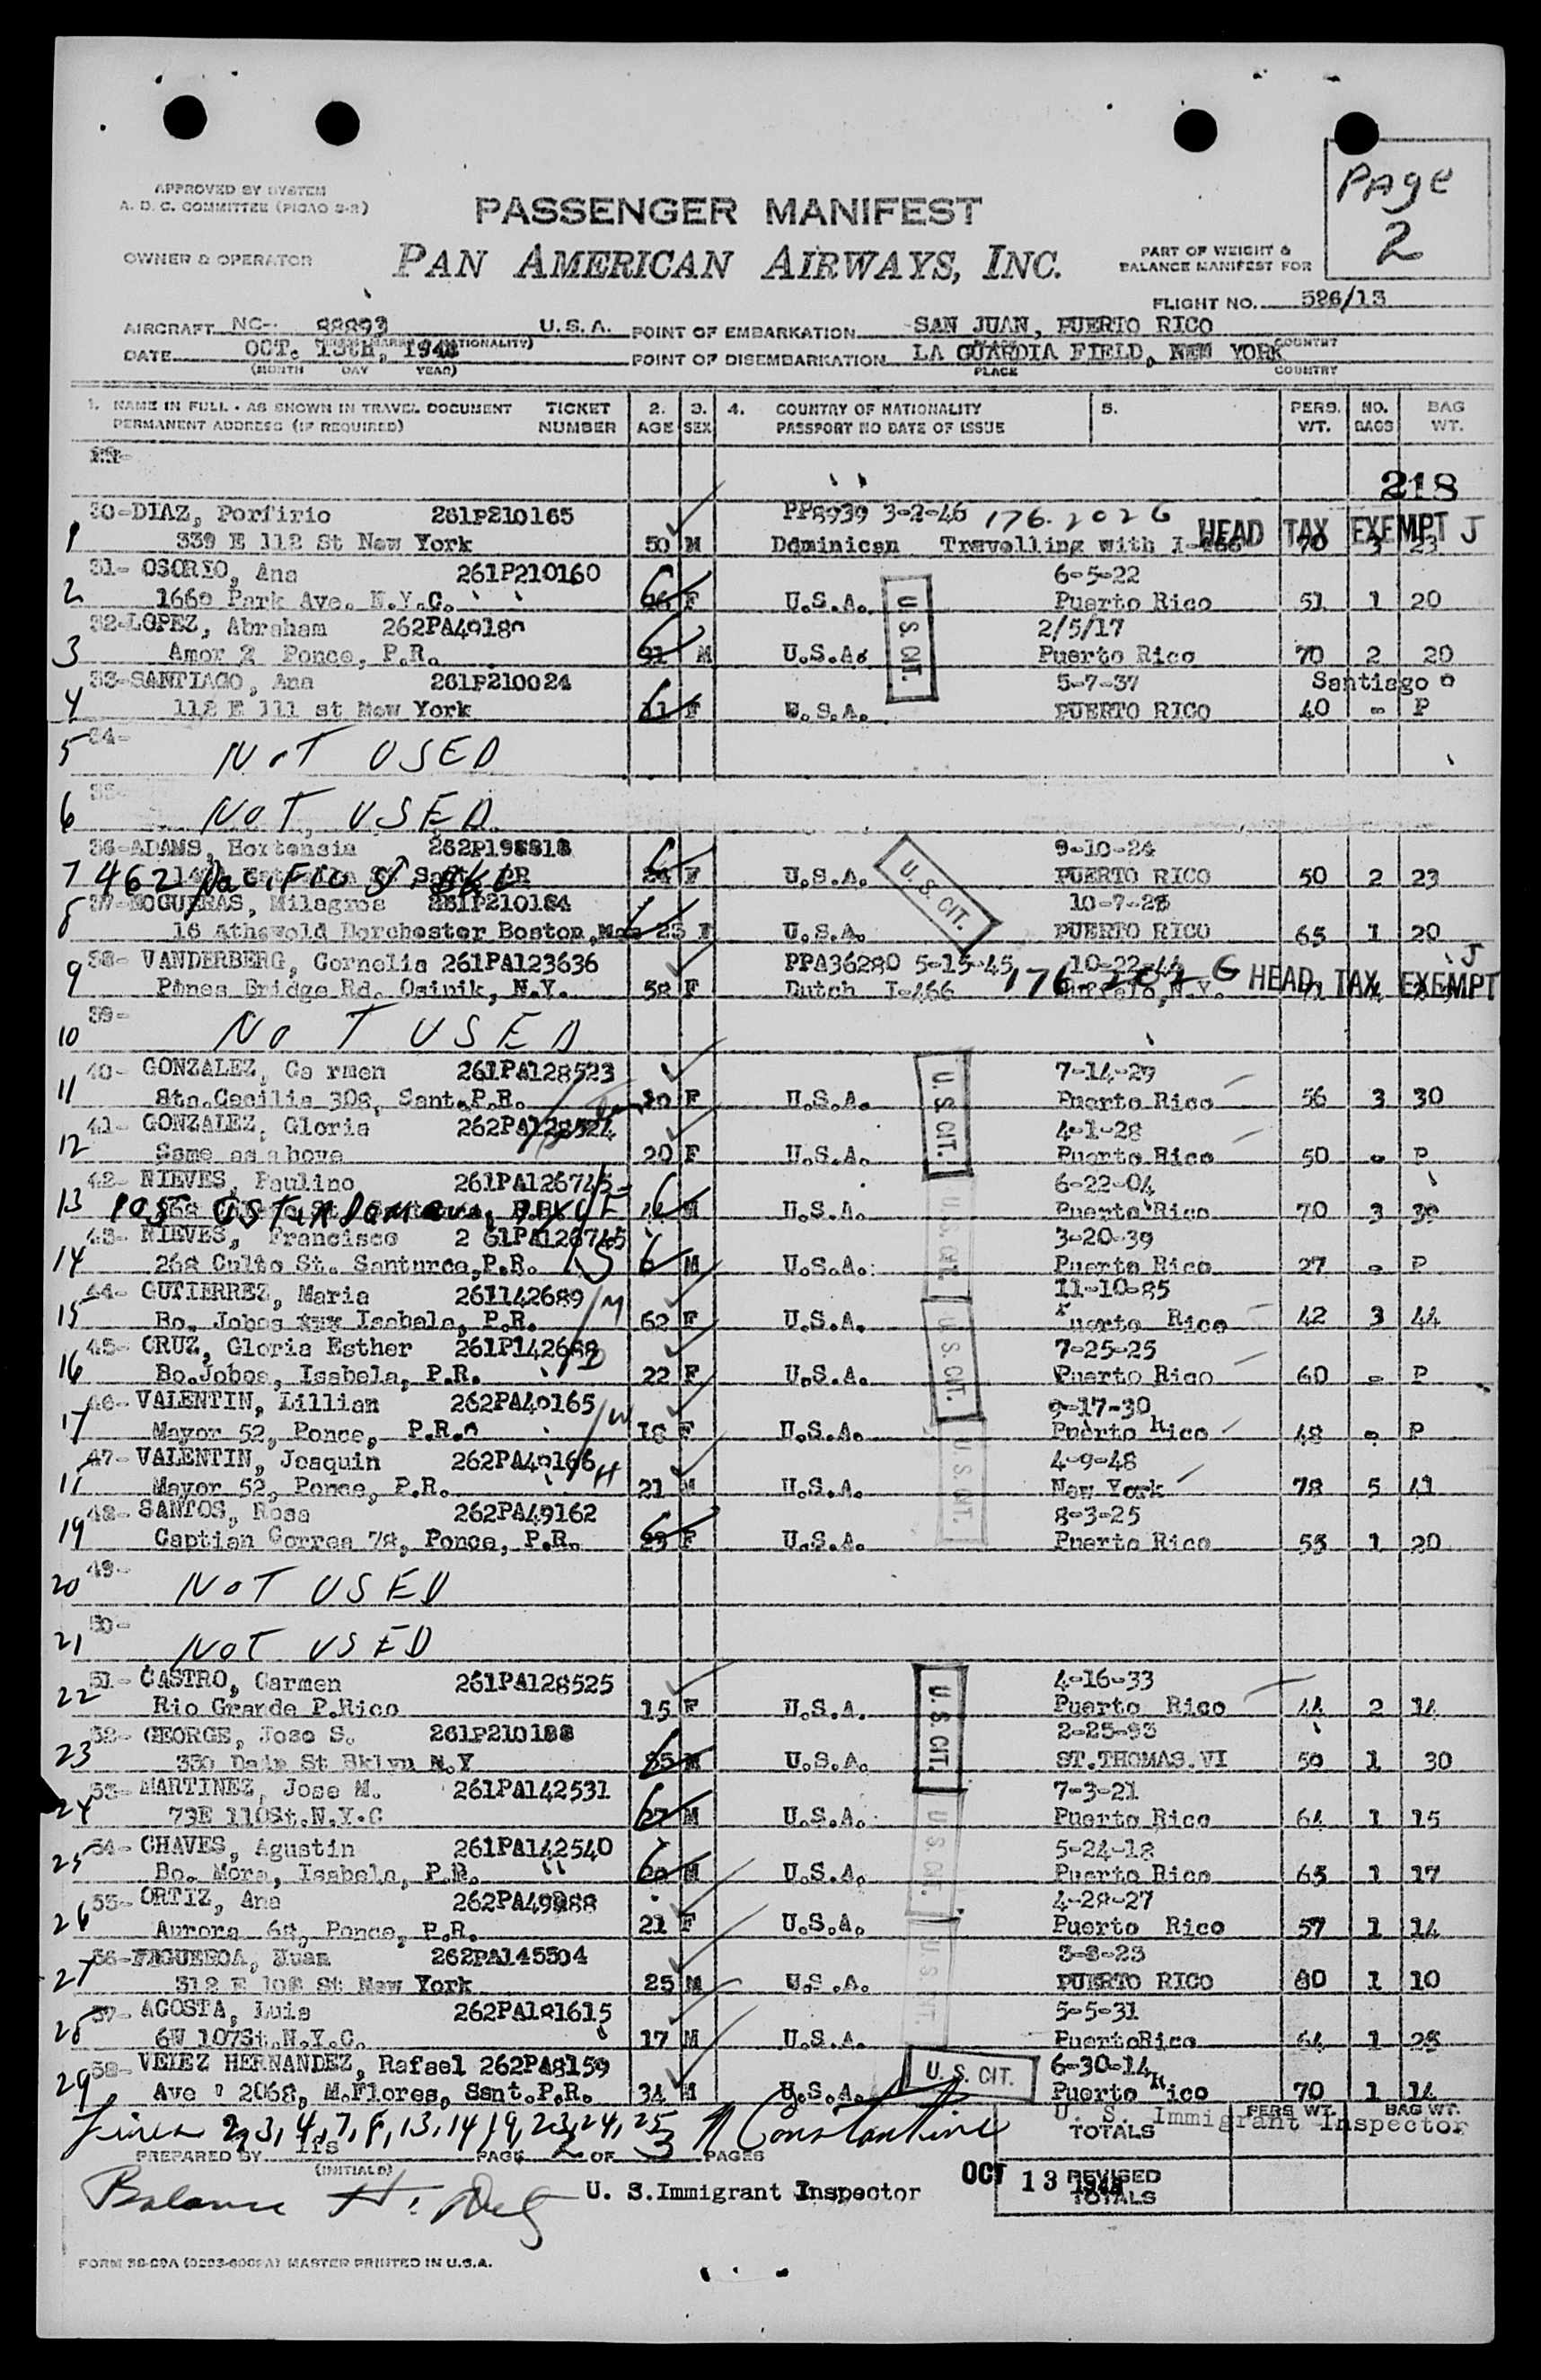 Page
2
APPROVED BY SYSTEM
A. D. C. COMMITTEE (PICAO S-2)
PASSENGER MANIFEST
OWNER & OPERATOR
PAN AMERICAN AIRWAYS, INC.
PART OF WEIGHT &
BALANCE MANIFEST FOR
FLIGHT NO. 526/13
AIRCRAFT NC- 88893 U.S.A. POINT OF EMBARKATION SAN JUAN, PUERTO RICO
DATE OCT. 13th, 1948 POINT OF DISEMBARKATION LA GUARDIA FIELD, NEW YORK
(MONTH DAY YEAR) PLACE COUNTRY
1. NAME IN FULL - AS SHOWN IN TRAVEL DOCUMENT TICKET 2. 3. 4. COUNTRY OF NATIONALITY 5. PERS. NO. BAG
PERMANENT ADDRESS (IF REQUIRED) NUMBER AGE SEX PASSPORT NO DATE OF ISSUE WT. BAGS WT.
218
30-DIAZ, Porfirio 261P210165 PP8939 3-2-46 176.2026 HEAD TAX EXEMPT J
1 339 E 112 St New York 50 M Dominican Travelling with 70 3 23
31- OSORIO, Ana 261P210160 6-5-22
2 1660 Park Ave. N.Y.C. F U.S.A. Puerto Rico 51 1 20
U.S. CIT.
32-LOPEZ, Abraham 2/5/17
3 Amor 2 Ponce, P.R. 31 M U.S.A. Puerto Rico 70 2 20
33-SANTIAGO, Ana 261P210024 5-7-37 Santiago
4 112 E 111 st New York 11 F U.S.A. PUERTO RICO 40 - P
5 34- NOT USED
6 35- NOT USED
36-ADAMS, Hortensia 9-10-24
7 462 Pacific St. F U.S.A. PUERTO RICO 50 2 23
U.S. CIT.
37-NOGUERAS, Milagros 261P210184 10-7-
8 16 Athewold Dorchester Boston, Mas 25 F U.S.A. PUERTO RICO 65 1 20
38- VANDERBERG, Cornelia 261PA123636 PPA36280 5-15-45 10-22-44 J
9 Pines Bridge Rd. Osinik, N.Y. 58 F Dutch I-466 176-202 G HEAD TAX EXEMPT
10 39- NOT USED
40- GONZALEZ, Carmen 261PA128523 7-14-29
11 Sta.Cecilia 306, Sant.P.R. F U.S.A. Puerto Rico 56 3 30
U.S. CIT.
41- GONZALEZ, Gloria 262PA128524 4-1-28
12 Same as above 20 F U.S.A. Puerto Rico 50 - P
42- NIEVES, Paulino 261PA126745 6-22-04
13 105 M U.S.A. Puerto Rico 70 3 30
U.S. CIT.
43- NIEVES, Francisco 261PA126745 3-20-39
14 268 Culto St. Santurce,P.R. /S M U.S.A. Puerto Rico 27 - P
44- GUTIERREZ, Maria 261142689 /M 11-10-85
15 Bo. Jobos Isabela, P.R. 62 F U.S.A. Puerto Rico 42 3 44
U.S. CIT.
45- CRUZ, Gloria Esther 261P142688 /D 7-25-25
16 Bo.Jobos, Isabela, P.R. 22 F U.S.A. Puerto Rico 60 - P
46- VALENTIN, Lillian 262PA40165 /W 9-17-30
17 Mayor 52, Ponce, P.R. 18 F U.S.A. Puerto Rico 48 - P
U.S. CIT.
47- VALENTIN, Joaquin 262PA40166 /H 4-9-48
Mayor 52, Ponce, P.R. 21 M U.S.A. New York 78 5 41
48- SANTOS, Rosa 262PA49162 8-3-25
19 Captian Correa 78, Ponce, P.R. 23 F U.S.A. Puerto Rico 55 1 20
20 49- NOT USED
21 50- NOT USED
51- CASTRO, Carmen 261PA128525 4-16-33
22 Rio Grande P.Rico 15 F U.S.A. Puerto Rico 44 2 14
U.S. CIT.
52- GEORGE, Jose S. 261P210188 2-25-93
23 330 St Bklyn N.Y 55 M U.S.A. ST.THOMAS.VI 50 1 30
53- MARTINEZ, Jose M. 261PA142531 7-3-21
24 73E 110St.N.Y.C 27 M U.S.A. Puerto Rico 64 1 15
U.S. CIT.
54- CHAVES, Agustin 261PA142540 5-24-18
25 Bo. Mora, Isabela, P.R. M U.S.A. Puerto Rico 65 1 17
55- ORTIZ, Ana 4-28-27
26 Aurora 68, Ponce, P.R. 21 F U.S.A. Puerto Rico 57 1 14
U.S. CIT.
56-FIGUEROA, Juan 262PA145504 3-8-23
27 312 E St New York 25 M U.S.A. PUERTO RICO 80 1 10
57- ACOSTA, Luis 262PA181615 5-5-31
28 6W 107St.N.Y.C. 17 M U.S.A. PuertoRico 64 1
58- VELEZ HERNANDEZ, Rafael 262PA8159 U.S. CIT. 6-30-14
29 Ave 2068, M.Flores, Sant.P.R. 34 M U.S.A. Puerto Rico 70 1 14
Lines 2,3,4,7,8,13,14,19,23,24,25 Constantine U. S. Immigrant Inspector
TOTALS PERS WT. BAG WT.
PREPARED BY PAGE 2 OF 3 PAGES
(INITIALS)
Balance U. S. Immigrant Inspector OCT 13 1948 REVISED
TOTALS
FORM MASTER PRINTED IN U.S.A.